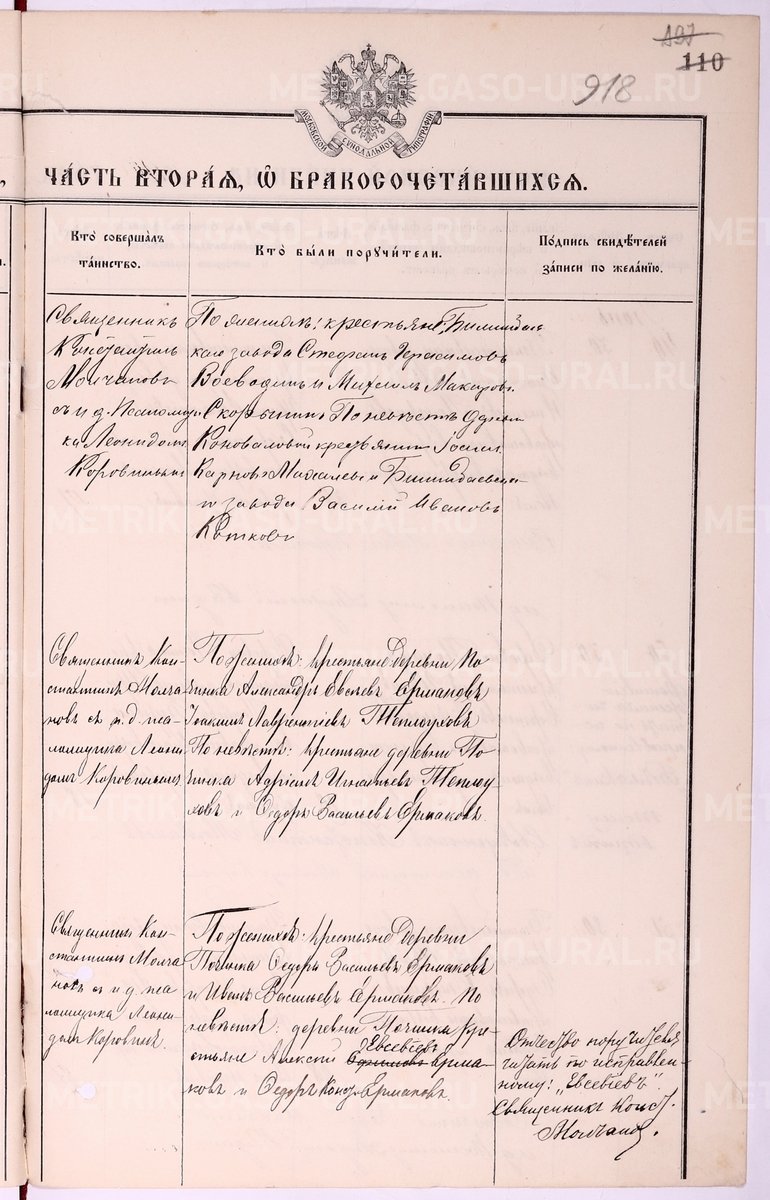 197
110
918
МОСКОВСКОЙ СѴНОДАЛЬНОЙ ТИПОГРАФІИ
ЧА́СТЬ ВТОРА́Я, Ѡ БРАКОСОЧЕТА́ВШИХСЯ.
Кто̀ соверша́лъ
та́инство.
Кто̀ бы́ли поручи́тели.
По́дпись свидѣ́телей
за́писи по жела́нію.
Священникъ
Константинъ
Молчановъ
съ и. д. псаломщи
ка Леонидомъ
Коровинымъ
По женихѣ: крестьяне Билимбаев
скаго завода Стефанъ Герасимовъ
Воеводинъ и Михаилъ Макаровъ
Скорынинъ По невѣстѣ
Коноваловой крестьянинъ
Карповъ и Билимбаевска
го завода Василій Ивановъ
Котковъ
Священникъ Кон-
стантинъ Молча
новъ съ и. д. пса-
ломщика Леони
домъ Коровинымъ
По женихѣ: крестьяне деревни По
чинка Александръ Евсѣевъ Ермаковъ
Іоакимъ Лаврентіевъ Теплоуховъ
По невѣстѣ: крестьяне деревни По
чинка Адріанъ Игнатьевъ Теплоу
ховъ и Ѳедоръ Васильевъ Ермаковъ.
Священникъ Кон-
стантинъ Молча
новъ съ и. д. пса
ломщика Леони
домъ Коровин.
По женихѣ: крестьяне деревни
Починка Ѳедоръ Васильевъ Ермаковъ
и Иванъ Васильевъ Ермаковъ. По
невѣстѣ: деревни Починка кре
Евсевіевъ
стьяне Алексѣй Ерма-
ковъ и Ѳедоръ Ермаковъ.
Отчество поручителя
читать по исправлен-
ному: "Евсевіевъ".
Священникъ Конст.
Молчановъ.
METRIKI.GASO-URAL.RU